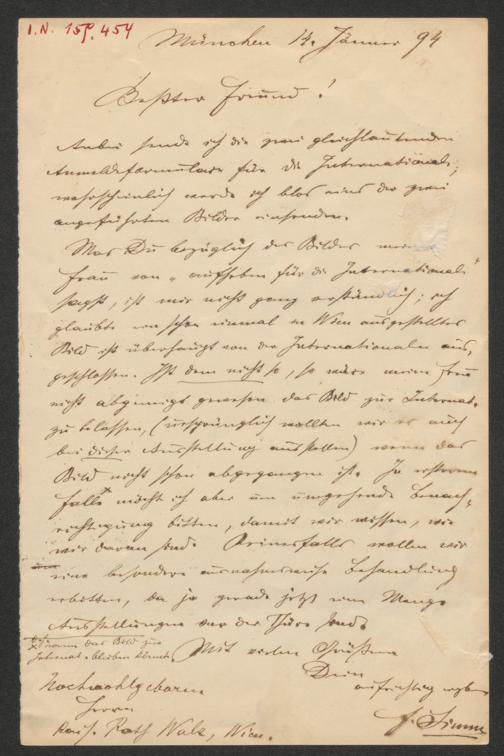 I.N. 159.454
München 14. Jänner 94
Bester Freund!
Anbei sende ich die zwei gleichlautenden
Anmeldeformulare für die Internationale;
wahrscheinlich werde ich blos eins der zwei
angeführten Bilder einsenden.
Was Du bezüglich des Bildes meiner
Frau von „aufheben für die Internationale"
sagst, ist mir nicht ganz verständlich; ich
glaubte ein schon einmal in Wien ausgestelltes
Bild ist überhaupt von der Internationalen aus-
geschlossen. Ist dem nicht so, so wäre meine Frau
nicht abgeneigt gewesen das Bild zur Internat.
zu belassen, (ursprünglich wollten wir es auch
bei dieser Ausstellung ausstellen) wenn das
Bild nicht schon abgegangen ist. In ersterem
Falle möcht ich aber um umgehende Benach-
richtigung bitten, damit wir wissen, wie
wir daran sind. Keinesfalls wollen wir
eine besondere ausnahmsweise Behandlung
erbitten, da ja gerade jetzt eine Menge
Ausstellungen vor der Thüre sind.
wenn das Bild zur
Internat. bleiben könnte.
Mit vielen Grüßen
Dein
aufrichtig ergeb.
Hochwohlgeboren
Herrn
Kais. Rath Walz, Wien.